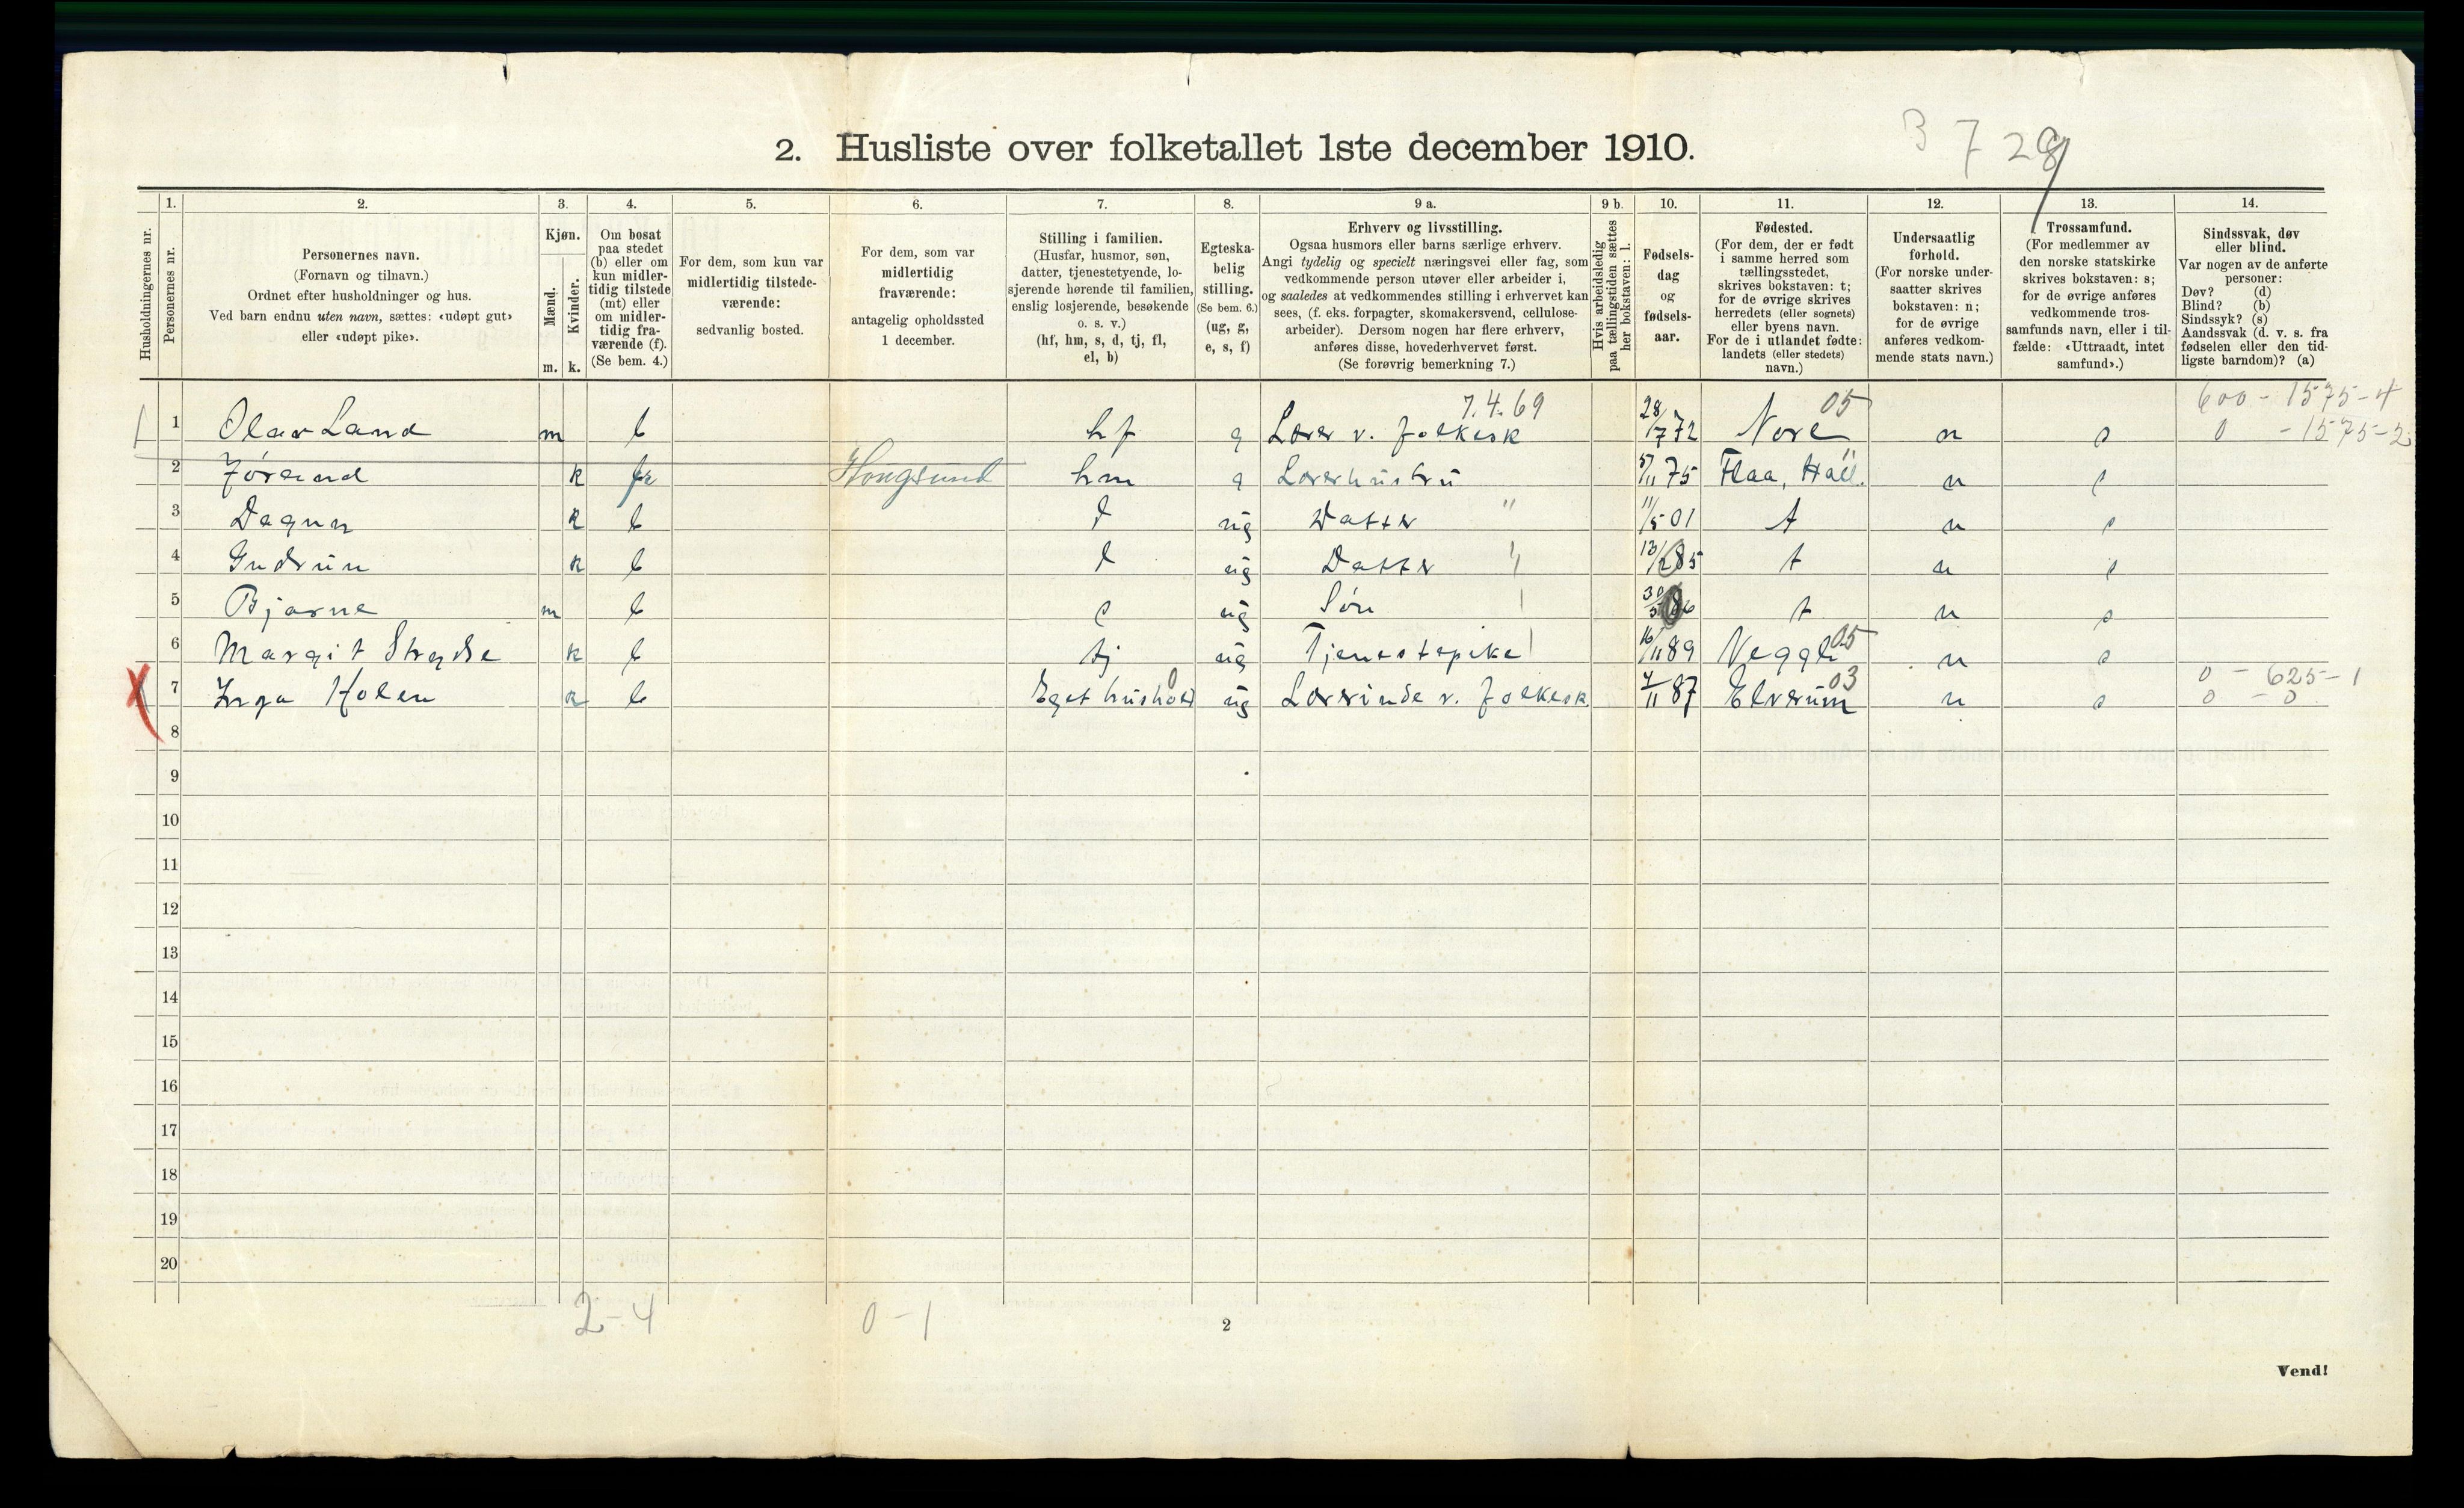 2. Husliste over folketallet 1ste december 1910.
3 7 28
1. 2. 3. 4. 5. 6. 7. 8. 9 a. 9 b. 10. 11. 12. 13. 14.
Husholdningernes nr.
Personernes nr.
Personernes navn.
(Fornavn og tilnavn.)
Ordnet efter husholdninger og hus.
Ved barn endnu uten navn, sættes: «udøpt gut»
eller «udøpt pike».
Kjøn.
Mænd.
Kvinder.
m. k.
Om bosat
paa stedet
(b) eller om
kun midler-
tidig tilstede
(mt) eller
om midler-
tidig fra-
værende (f).
(Se bem. 4.)
For dem, som kun var
midlertidig tilstede-
værende:
sedvanlig bosted.
For dem, som var
midlertidig
fraværende:
antagelig opholdssted
1 december.
Stilling i familien.
(Husfar, husmor, søn,
datter, tjenestetyende, lo-
sjerende hørende til familien,
enslig losjerende, besøkende
o. s. v.)
(hf, hm, s, d, tj, fl,
el, b)
Egteska-
belig
stilling.
(Se bem. 6.)
(ug, g,
e, s, f)
Erhverv og livsstilling.
Ogsaa husmors eller barns særlige erhverv.
Angi tydelig og specielt næringsvei eller fag, som
vedkommende person utøver eller arbeider i,
og saaledes at vedkommendes stilling i erhvervet kan
sees, (f. eks. forpagter, skomakersvend, cellulose-
arbeider). Dersom nogen har flere erhverv,
anføres disse, hovederhvervet først.
(Se forøvrig bemerkning 7.)
Hvis arbeidsledig
paa tællingstiden sættes
her bokstaven: l.
Fødsels-
dag
og
fødsels-
aar.
Fødested.
(For dem, der er født
i samme herred som
tællingsstedet,
skrives bokstaven: t;
for de øvrige skrives
herredets (eller sognets)
eller byens navn.
For de i utlandet fødte:
landets (eller stedets)
navn.)
Undersaatlig
forhold.
(For norske under-
saatter skrives
bokstaven: n;
for de øvrige
anføres vedkom-
mende stats navn.)
Trossamfund.
(For medlemmer av
den norske statskirke
skrives bokstaven: s;
for de øvrige anføres
vedkommende tros-
samfunds navn, eller i til-
fælde: «Uttraadt, intet
samfund».)
Sindssvak, døv
eller blind.
Var nogen av de anførte
personer:
Døv? (d)
Blind? (b)
Sindssyk? (s)
Aandssvak (d. v. s. fra
fødselen eller den tid-
ligste barndom)? (a)
7.4.69 05 600 - 1575 - 4
1 Olav Land m b hf g Lærer v. folkesk 28/7 72 Nore n s 0 - 1575 - 2
2 Jørand k Hougsund hm g Lærerhustru 5/11 75 Flaa, Hall. n s
3 Dagny k b d ug Datter " 11/5 01 t n s
4 Gudrun k b d ug Datter " t n s
5 Bjarne m b s ug Søn t n s
6 Margit k b tj ug Tjenestepike 16/11 89 Veggli 05 n s
7 Inga Holen k b Eget hushold 0 ug Lærerinde v. folkesk. 4/11 87 Elverum 03 n s 0 - 625 - 1
0 - 0
8
9
10
11
12
13
14
15
16
17
18
19
20
2 - 4 0 - 1
2
Vend!